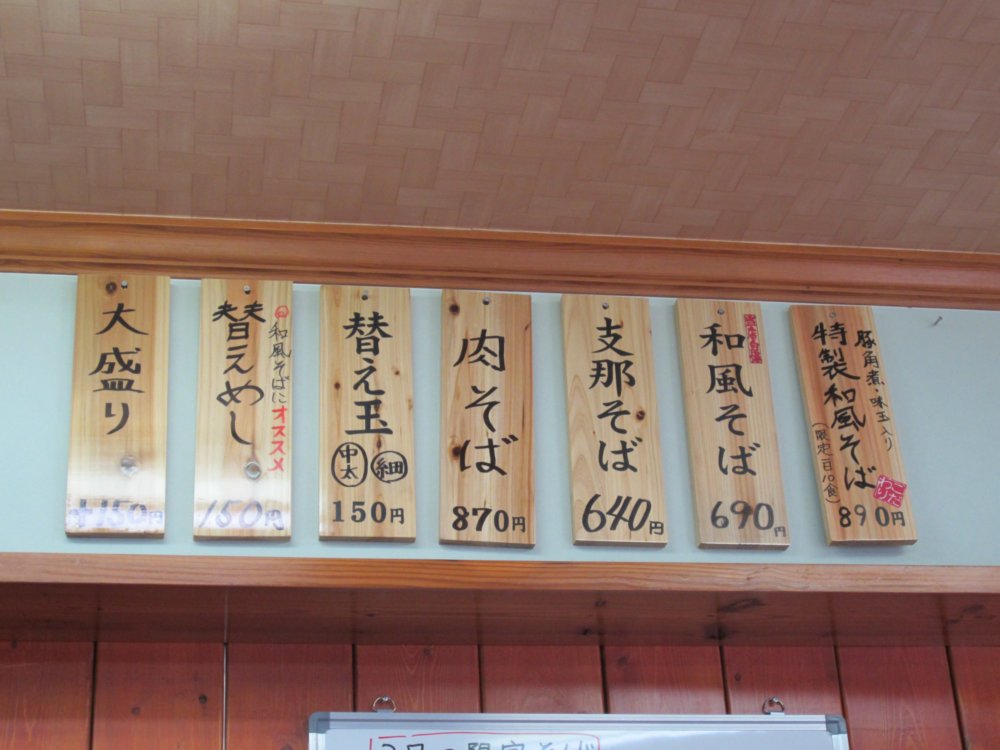 豚角煮・味玉入り
特製和風そば
(限定一日10食)
こだわり
890円
和風そば
690円
支那そば
640円
肉そば
870円
替え玉
中太
細
150円
和風そばにオススメ
替えめし
150円
大盛り
+150円